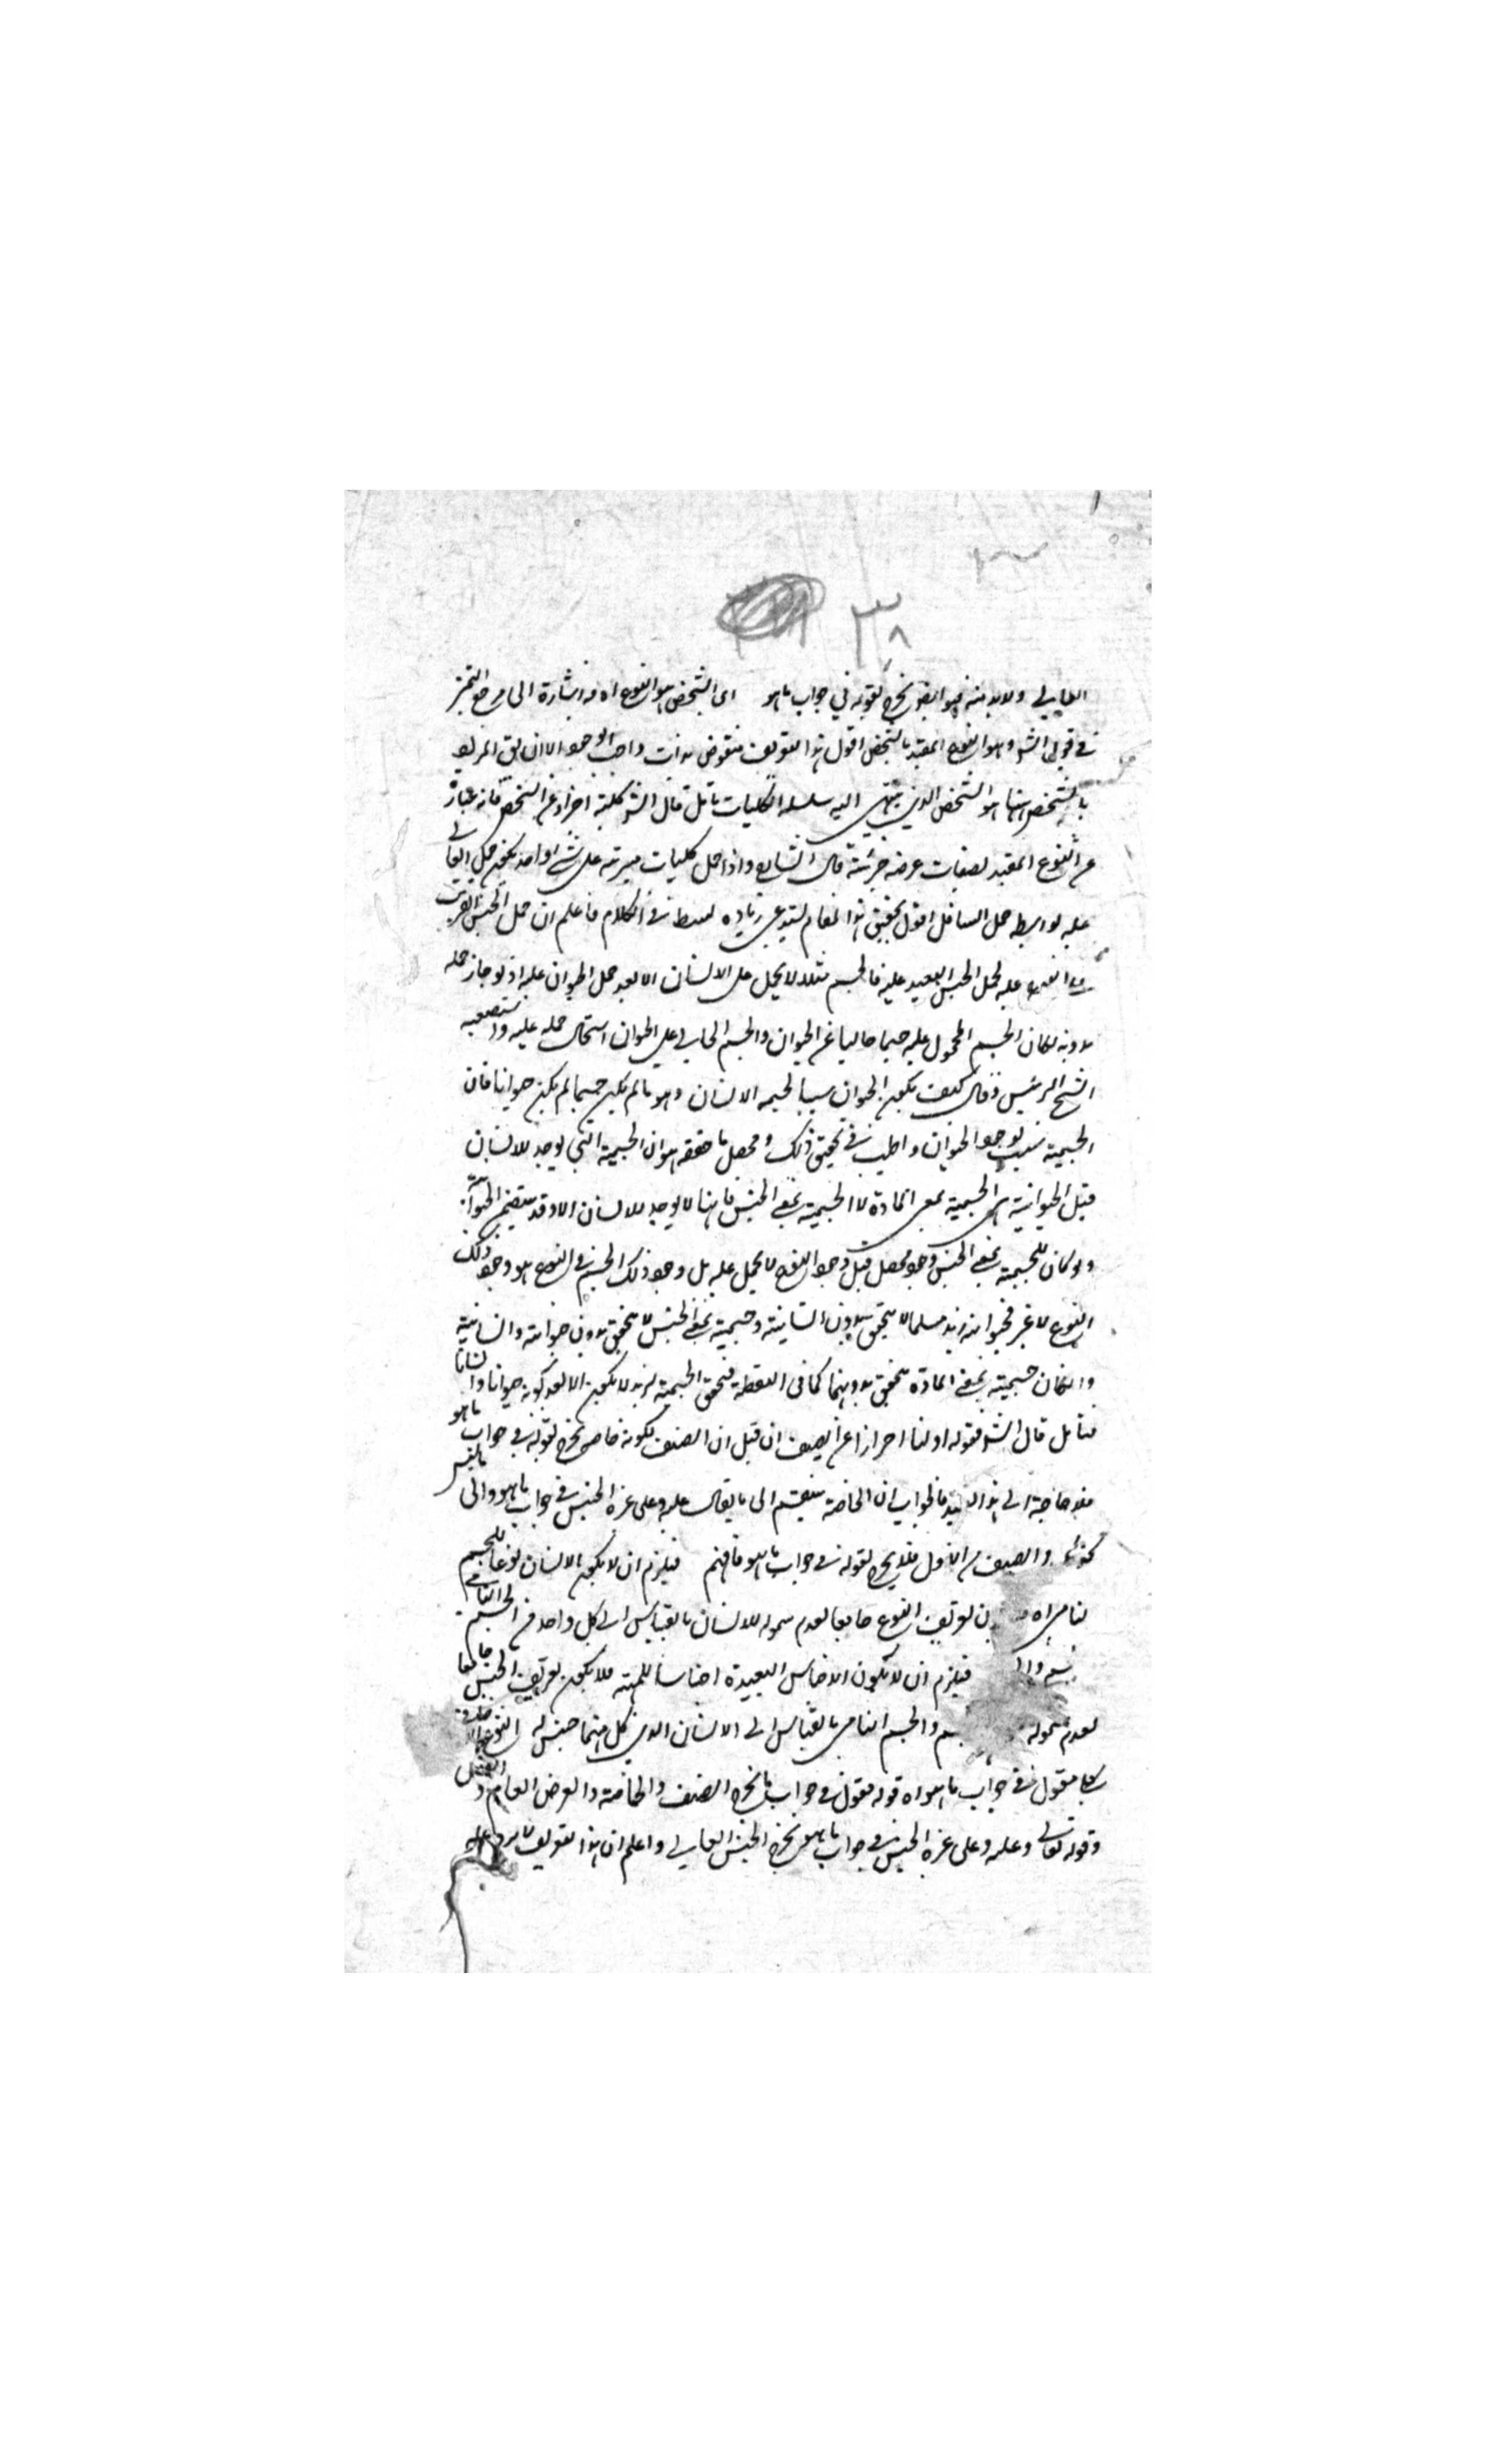 ٣٨
العالي ولا بد منه فهو ايضا يخرج بقوله في جواب ما هو اى الشخص هو النوع اه فيه اشارة الى مرجع التميز
في قول الش وهو النوع المقيد بالتشخص اقول هذا التعريف منقوض بذات واجب الوجود الا ان يق المراد
بالشخص ههنا هو الشخص الذي ينتهي اليه سلسلة الكليات تأمل قال الش كلية احتراز عن الشخص فانه عبارة
عن النوع المقيد بصفات عرضية جزئية قال الشارح واذا حمل كليات مترتبة على شئ واحد يكون حمل العالي
عليه بواسطة حمل السافل اقول تحقيق هذا المقام يستدعي زيادة بسط في الكلام فاعلم ان حمل الجنس القريب
على النوع علة لحمل الجنس البعيد عليه فالجسم مثلا لا يحمل على الانسان الا بعد حمل الحيوان عليه اذ لو جاز حمله
بدونه لكان الجسم المحمول عليه جسما خاليا عن الحيوان والجسم الخالي عن الحيوان استحال حمله عليه واستصعبه
الشيخ الرئيس وقال كيف يكون الحيوان سببا لجسمية الانسان وهو ما لم يكن جسما لم يكن حيوانا فان
الجسمية سبب لوجود الحيوان واطنب في تحقيق ذلك ومحصل ما حققه هو ان الجسمية التي يوجد للانسان
قبل الحيوانية هي الجسمية بمعنى المادة لا الجسمية بمعنى الجنس فانها لا يوجد للانسان الا وقد يتضمن الحيوانية
ولو كان للجسمية بمعنى الجنس وجود محصل قبل وجود النوع لا يحمل عليه بل وجود ذلك الجنس في النوع هو وجود ذلك
النوع لا غير فحيوانية زيد مسلما لا يتحقق بدون انسانيته وجسمية بمعنى الجنس لا يتحقق بدون حيوانيته وانسانيته
وان كان جسمية بمعنى المادة يتحقق بدونهما كما في النطفة فتحقق الجسمية لزيد لا يكون الا بعد كونه حيوانا وانسانا
فتأمل قال الش فقوله اوليا احترازا عن الصنف ان قيل ان الصنف لكونه خاصة يخرج بقوله في جواب ما هو
فلا حاجة الى هذا القيد فالجواب ان الخاصة ينقسم الى ما يقال عليه وعلى غيره الجنس في جواب ما هو والى ما ليس
كذلك والصنف من الاول فلا يخرج بقوله في جواب ما هو فافهم فيلزم ان لا يكون الانسان نوعا للجسم
النامي اه تعريف النوع جامعا لعدم شموله للانسان بالقياس الى كل واحد من الجسم النامي
فيلزم ان لا يكون الاجناس البعيدة اجناسا للمهية فلا يكون تعريف الجنس جامعا
لعدم شموله والجسم النامي بالقياس الى الانسان الذي كل منهما جنس له النوع
كلي مقول في جواب ما هو اه قوله مقول في جواب ما يخرج الصنف والخاصة والعرض العام و
وقوله تعالى وعليه وعلى غيره الجنس في جواب ما هو يخرج الجنس العالي واعلم ان هذا التعريف لا يرد عليه